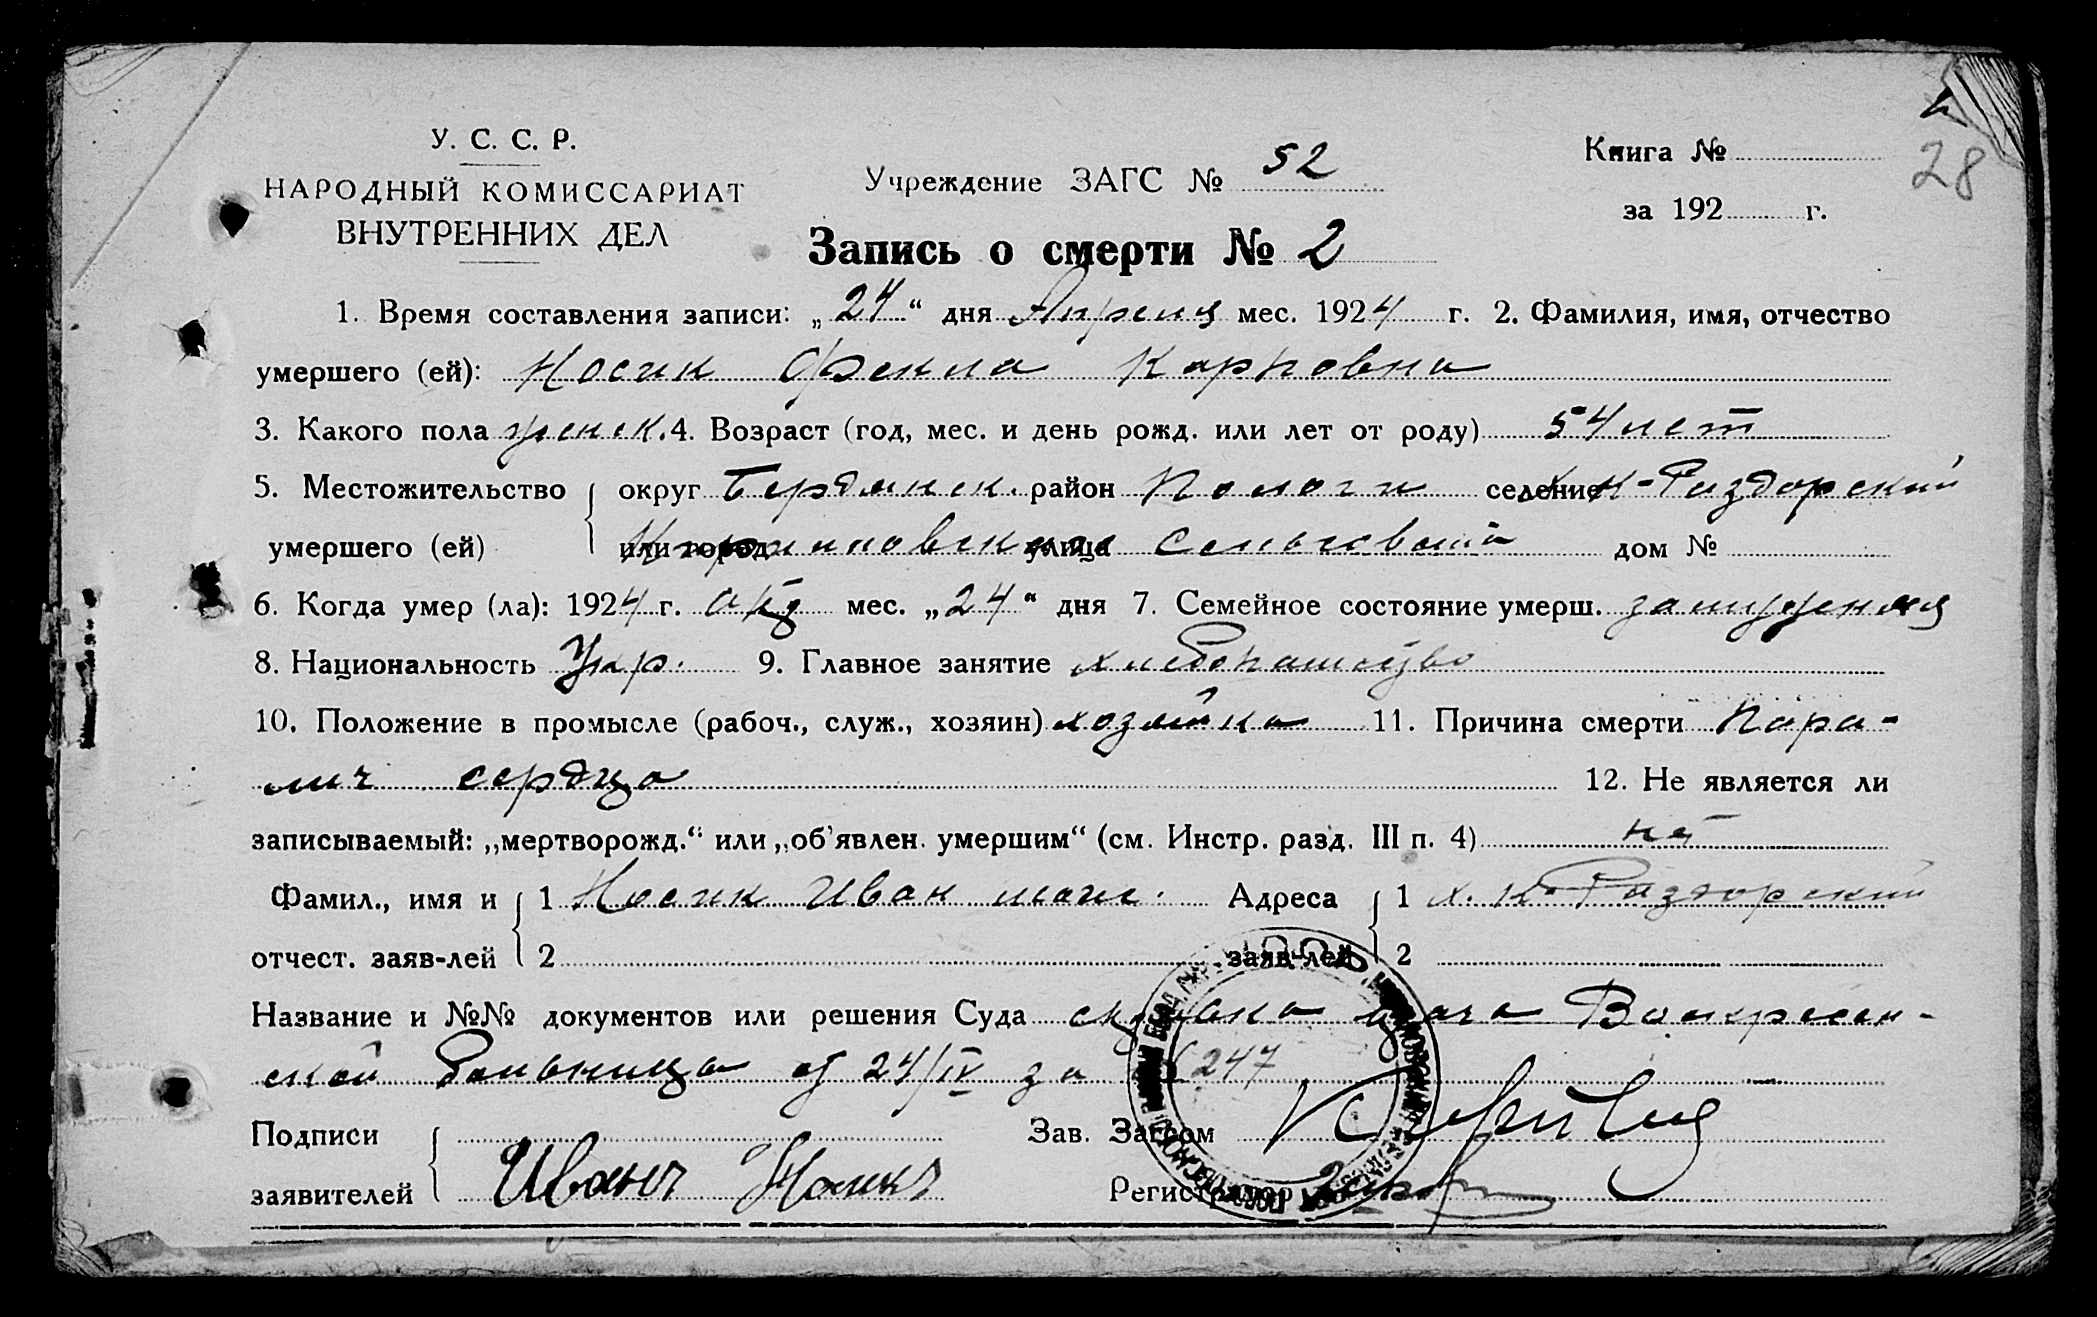 28
У. С. С. Р.
НАРОДНЫЙ КОМИССАРИАТ
ВНУТРЕННИХ ДЕЛ
Учреждение ЗАГС № 52
Книга №
за 192 г.
Запись о смерти № 2
1. Время составления записи: „24“ дня Апреля мес. 1924 г. 2. Фамилия, имя, отчество
умершего (ей): Носик Фекла Карповна
3. Какого пола женск. 4. Возраст (год, мес. и день рожд. или лет от роду) 54 лет
5. Местожительство округ Бердянск. район Пологи селение х. К-Раздорский
умершего (ей) или город улица Сельсовета дом №
6. Когда умер (ла): 1924 г. мес. „24“ дня 7. Семейное состояние умерш. замужняя
8. Национальность Укр. 9. Главное занятие хлебопашество
10. Положение в промысле (рабоч., служ., хозяин) хозяйка 11. Причина смерти Пара-
лич сердца 12. Не является ли
записываемый: „мертворожд.“ или „об'явлен. умершим“ (см. Инстр. разд. III п. 4) нет
Фамил., имя и 1 Носик Иван Адреса 1 х. К-Раздорский
отчест. заяв-лей 2 заяв-лей 2
Название и №№ документов или решения Суда справка врача Воскресен-
ской больницы от 24/IV за № 247
Подписи Зав. Загсом
заявителей Иванъ Носикъ Регистратор